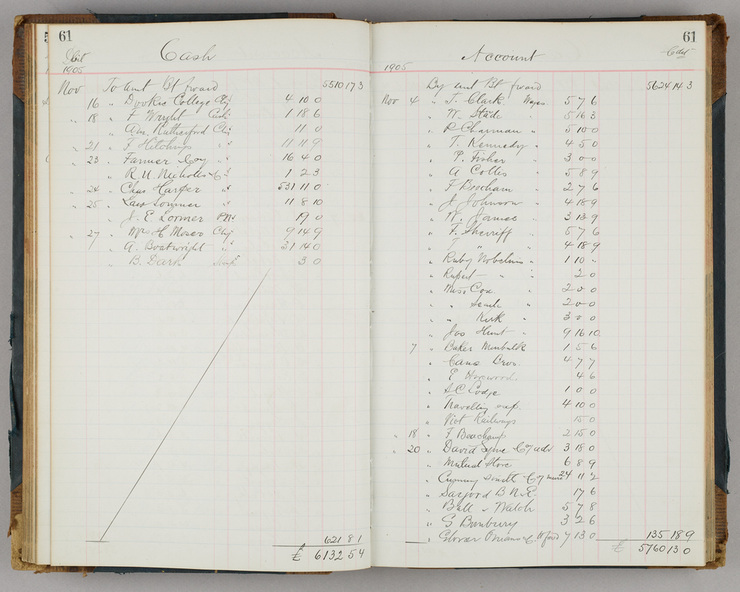 61
Cash
1905
Nov To amt Bt forward 5510 17 3
16 " Dookie College Chq 4 10 0
" 18 " F Wright Cash 1 18 6
" Rutherford Chq 11 0
" 21 " F Hitchings " 11 11 9
" 23 " Farmer & Coy " 16 4 0
" R. U. Nicholls 1 2 3
" 24 " Chas Harper " 531 11 0
" 25 " Lars 11 8 10
" J. E. Lormer 19 0
" 27 " Mrs H Moner Chq 9 14 9
" A. Boatwright " 31 14 0
" B. Dark 3 0
621 8 1
£ 6132 5 4
61
Account
1905
By amt Bt forward 5624 14 3
Nov 4 " J. Clark Wages 5 7 6
" W. Slade " 5 16 3
" R Charman " 5 10 0
" T. Kennedy " 4 5 0
" P. Fisher " 3 0 0
" A Colles " 5 8 9
" F Boocham " 2 7 6
" J. Johnson " 4 18 9
" W. " 3 13 9
" F. Sherriff " 5 7 6
" " " 4 18 9
" Ruby " 1 10 "
" Rupert " " 2 0
" Miss Cox " 2 0 0
" " " 2 0 0
" " Kirk " 3 0 0
" Jos Hunt " 9 16 10
7 " Baker 1 5 6
" Cans Bros. 4 7 7
" E Horwood 4 6
" S C Lodge 1 0 0
" Travelling exp. 4 10 0
" Vict Railways 15 0
" 18 " F Beauchamp 2 15 0
" 20 " David Syme & Coy adv 3 18 0
" Mutual Store 6 8 9
" Cuming Smith & Coy 24 11 2
" Sargood B. N. & E. 17 6
" Ball & Welch 5 7 8
" G Bunbury 3 2 6
" Glover Onians & Co 7 13 0 135 18 9
£ 5760 13 0